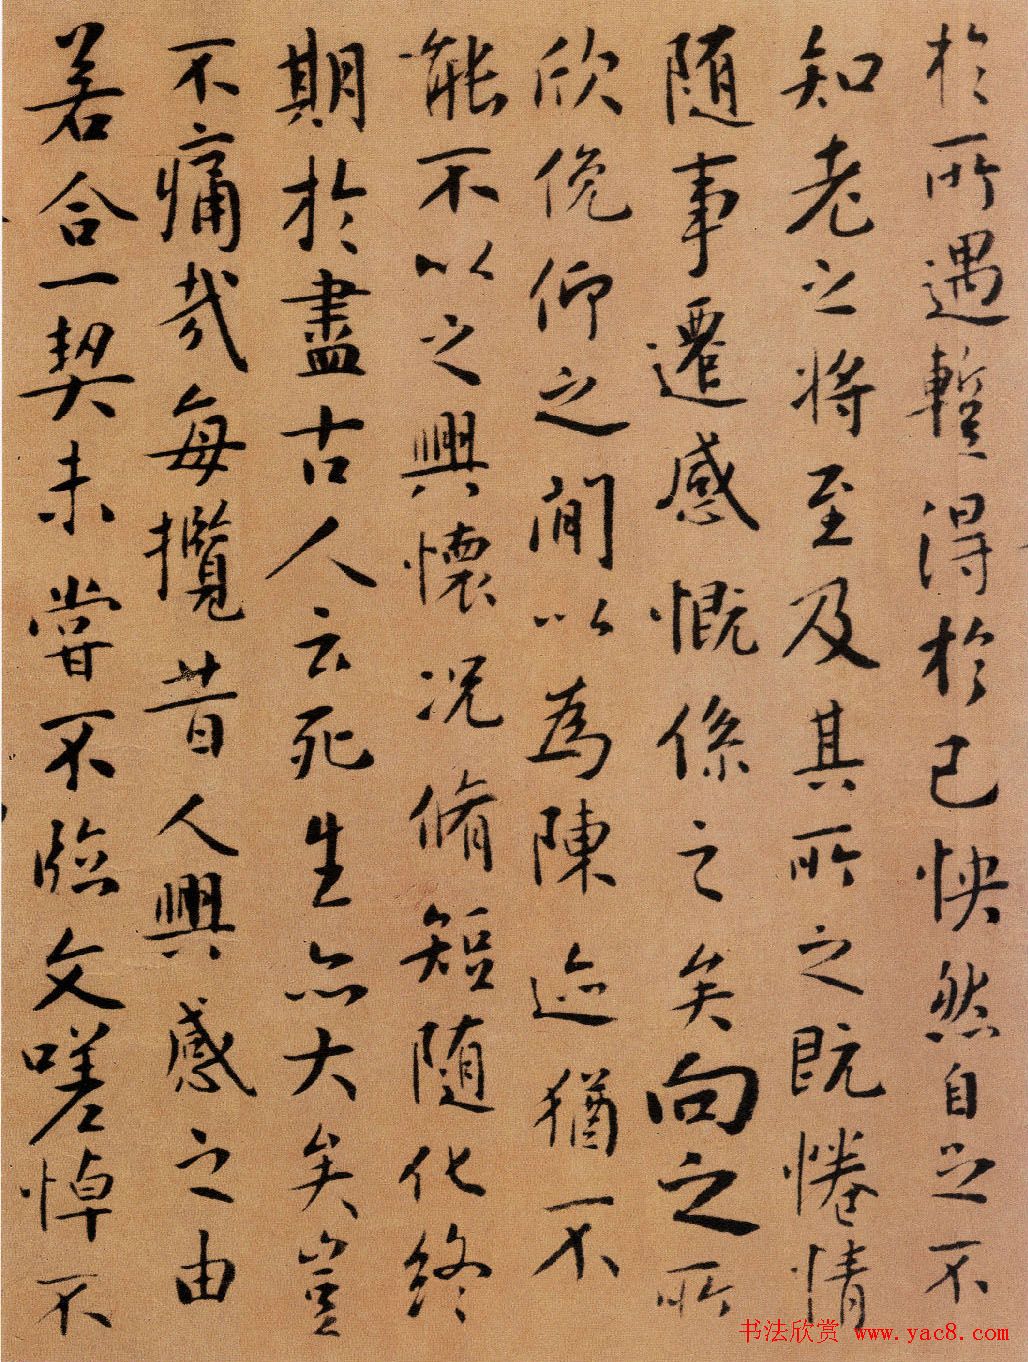 於所遇蹔得於己怏然自足不
知老之將至及其所之既惓情
隨事遷感慨係之矣向之所
欣俛仰之間以為陳迹猶不
能不以之興懷況脩短隨化終
期於盡古人云死生亦大矣豈
不痛哉每攬昔人興感之由
若合一契未嘗不臨文嗟悼不
书法欣赏 www.yac8.com